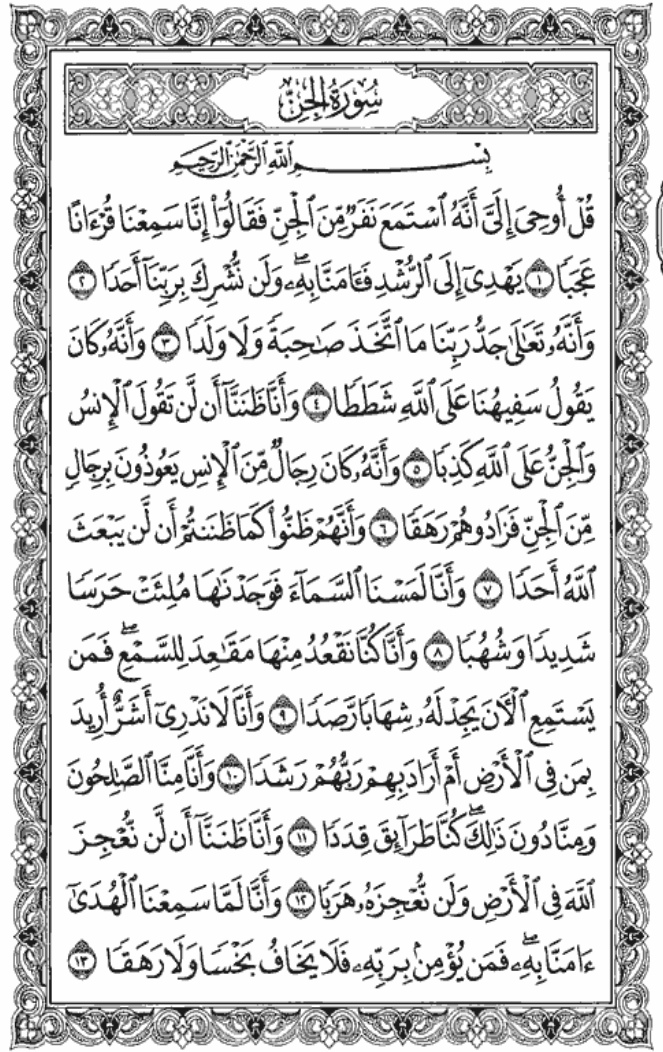 سُورَةُ الجِنِّ
بِسْمِ ٱللَّهِ ٱلرَّحْمَٰنِ ٱلرَّحِيمِ
قُلْ أُوحِيَ إِلَيَّ أَنَّهُ ٱسْتَمَعَ نَفَرٌ مِّنَ ٱلْجِنِّ فَقَالُوٓا۟ إِنَّا سَمِعْنَا قُرْءَانًا
عَجَبًا ١ يَهْدِىٓ إِلَى ٱلرُّشْدِ فَـَٔامَنَّا بِهِۦۖ وَلَن نُّشْرِكَ بِرَبِّنَآ أَحَدًا ٢
وَأَنَّهُۥ تَعَٰلَىٰ جَدُّ رَبِّنَا مَا ٱتَّخَذَ صَٰحِبَةً وَلَا وَلَدًا ٣ وَأَنَّهُۥ كَانَ
يَقُولُ سَفِيهُنَا عَلَى ٱللَّهِ شَطَطًا ٤ وَأَنَّا ظَنَنَّآ أَن لَّن تَقُولَ ٱلْإِنسُ
وَٱلْجِنُّ عَلَى ٱللَّهِ كَذِبًا ٥ وَأَنَّهُۥ كَانَ رِجَالٌ مِّنَ ٱلْإِنسِ يَعُوذُونَ بِرِجَالٍ
مِّنَ ٱلْجِنِّ فَزَادُوهُمْ رَهَقًا ٦ وَأَنَّهُمْ ظَنُّوا۟ كَمَا ظَنَنتُمْ أَن لَّن يَبْعَثَ
ٱللَّهُ أَحَدًا ٧ وَأَنَّا لَمَسْنَا ٱلسَّمَآءَ فَوَجَدْنَٰهَا مُلِئَتْ حَرَسًا
شَدِيدًا وَشُهُبًا ٨ وَأَنَّا كُنَّا نَقْعُدُ مِنْهَا مَقَٰعِدَ لِلسَّمْعِۖ فَمَن
يَسْتَمِعِ ٱلْـَٔانَ يَجِدْ لَهُۥ شِهَابًا رَّصَدًا ٩ وَأَنَّا لَا نَدْرِىٓ أَشَرٌّ أُرِيدَ
بِمَن فِى ٱلْأَرْضِ أَمْ أَرَادَ بِهِمْ رَبُّهُمْ رَشَدًا ١٠ وَأَنَّا مِنَّا ٱلصَّٰلِحُونَ
وَمِنَّا دُونَ ذَٰلِكَۖ كُنَّا طَرَآئِقَ قِدَدًا ١١ وَأَنَّا ظَنَنَّآ أَن لَّن نُّعْجِزَ
ٱللَّهَ فِى ٱلْأَرْضِ وَلَن نُّعْجِزَهُۥ هَرَبًا ١٢ وَأَنَّا لَمَّا سَمِعْنَا ٱلْهُدَىٰٓ
ءَامَنَّا بِهِۦۖ فَمَن يُؤْمِنۢ بِرَبِّهِۦ فَلَا يَخَافُ بَخْسًا وَلَا رَهَقًا ١٣